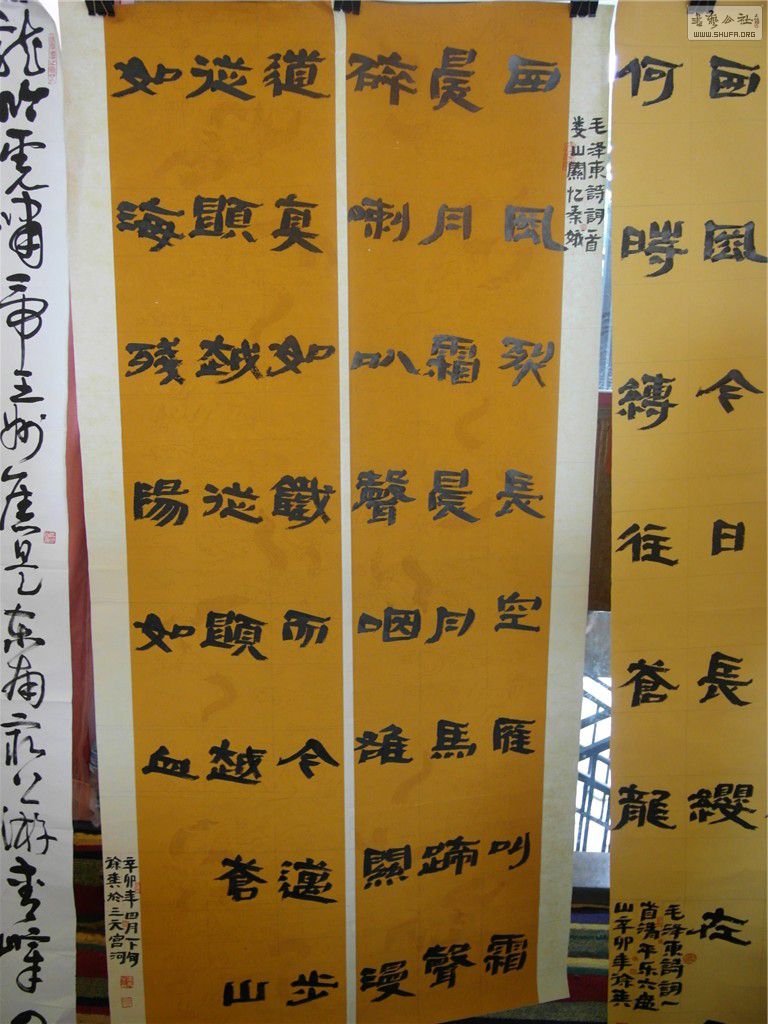 書藝公社
WWW.SHUFA.ORG
西風今日長纓在
何時縛往蒼龍
毛泽東詩詞一
首清平乐六盘
山辛卯年徐英
毛泽東詩詞一首
娄山關忆秦娥
西風裂長空雁叫霜
晨月霜晨月馬蹄聲
碎喇叭聲咽雄關漫
道真如鐵而今邁步
從頭越從頭越蒼山
如海残陽如血
辛卯年四月下旬
徐英於三天宫河
龙吟虎啸帝王州舊是东南最上游青嶂